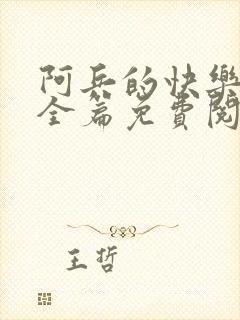 阿兵的快樂
全篇免費閱
王哲